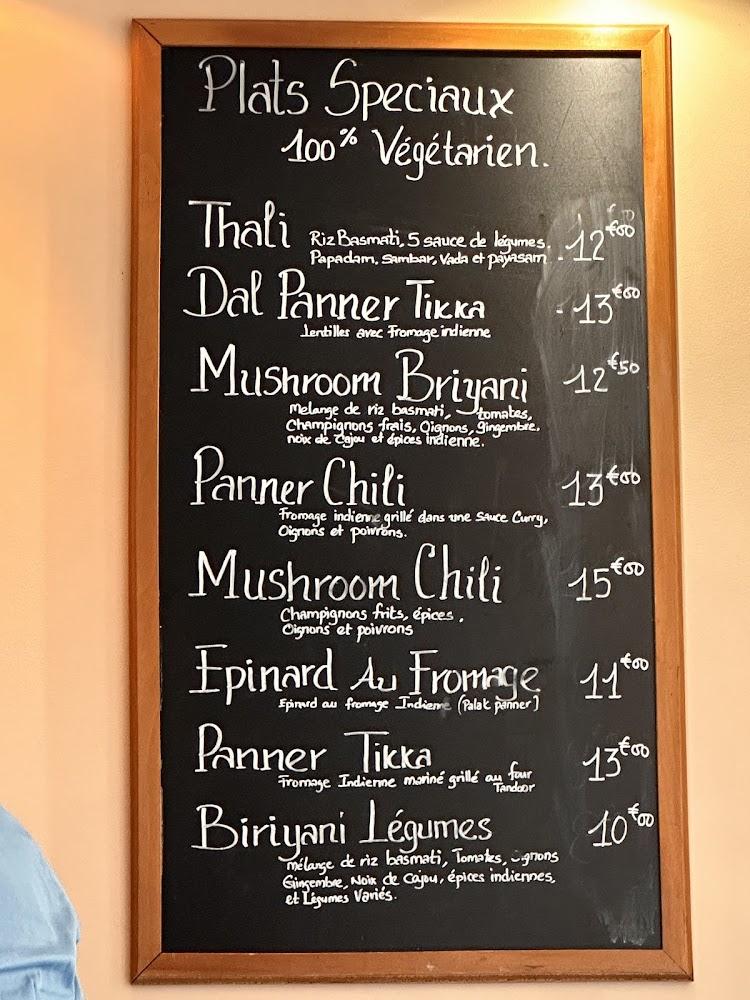 Plats Speciaux
100% Végétarien.
Thali Riz Basmati, 5 sauce de légumes. 12€00
Papadam, sambar, Vada et payasam.
Dal Panner Tikka 13€00
Lentilles avec Fromage indienne
Mushroom Briyani 12€50
Melange de riz basmati, tomates,
Champignons frais, Oignons, gingembre,
noix de Cajou et épices indienne.
Panner Chili 13€00
Fromage indienne grillé dans une Sauce Curry,
Oignons et poivrons.
Mushroom Chili 15€00
Champignons frits, épices,
Oignons et poivrons
Epinard Au Fromage 11€00
Epinard au fromage Indienne (Palak panner)
Panner Tikka 13€00
Fromage Indienne mariné grillé au four
Tandoor
Biriyani Légumes 10€00
mélange de riz basmati, Tomates, Oignons
Gingembre, Noix de Cajou, épices indiennes,
et Légumes Variés.